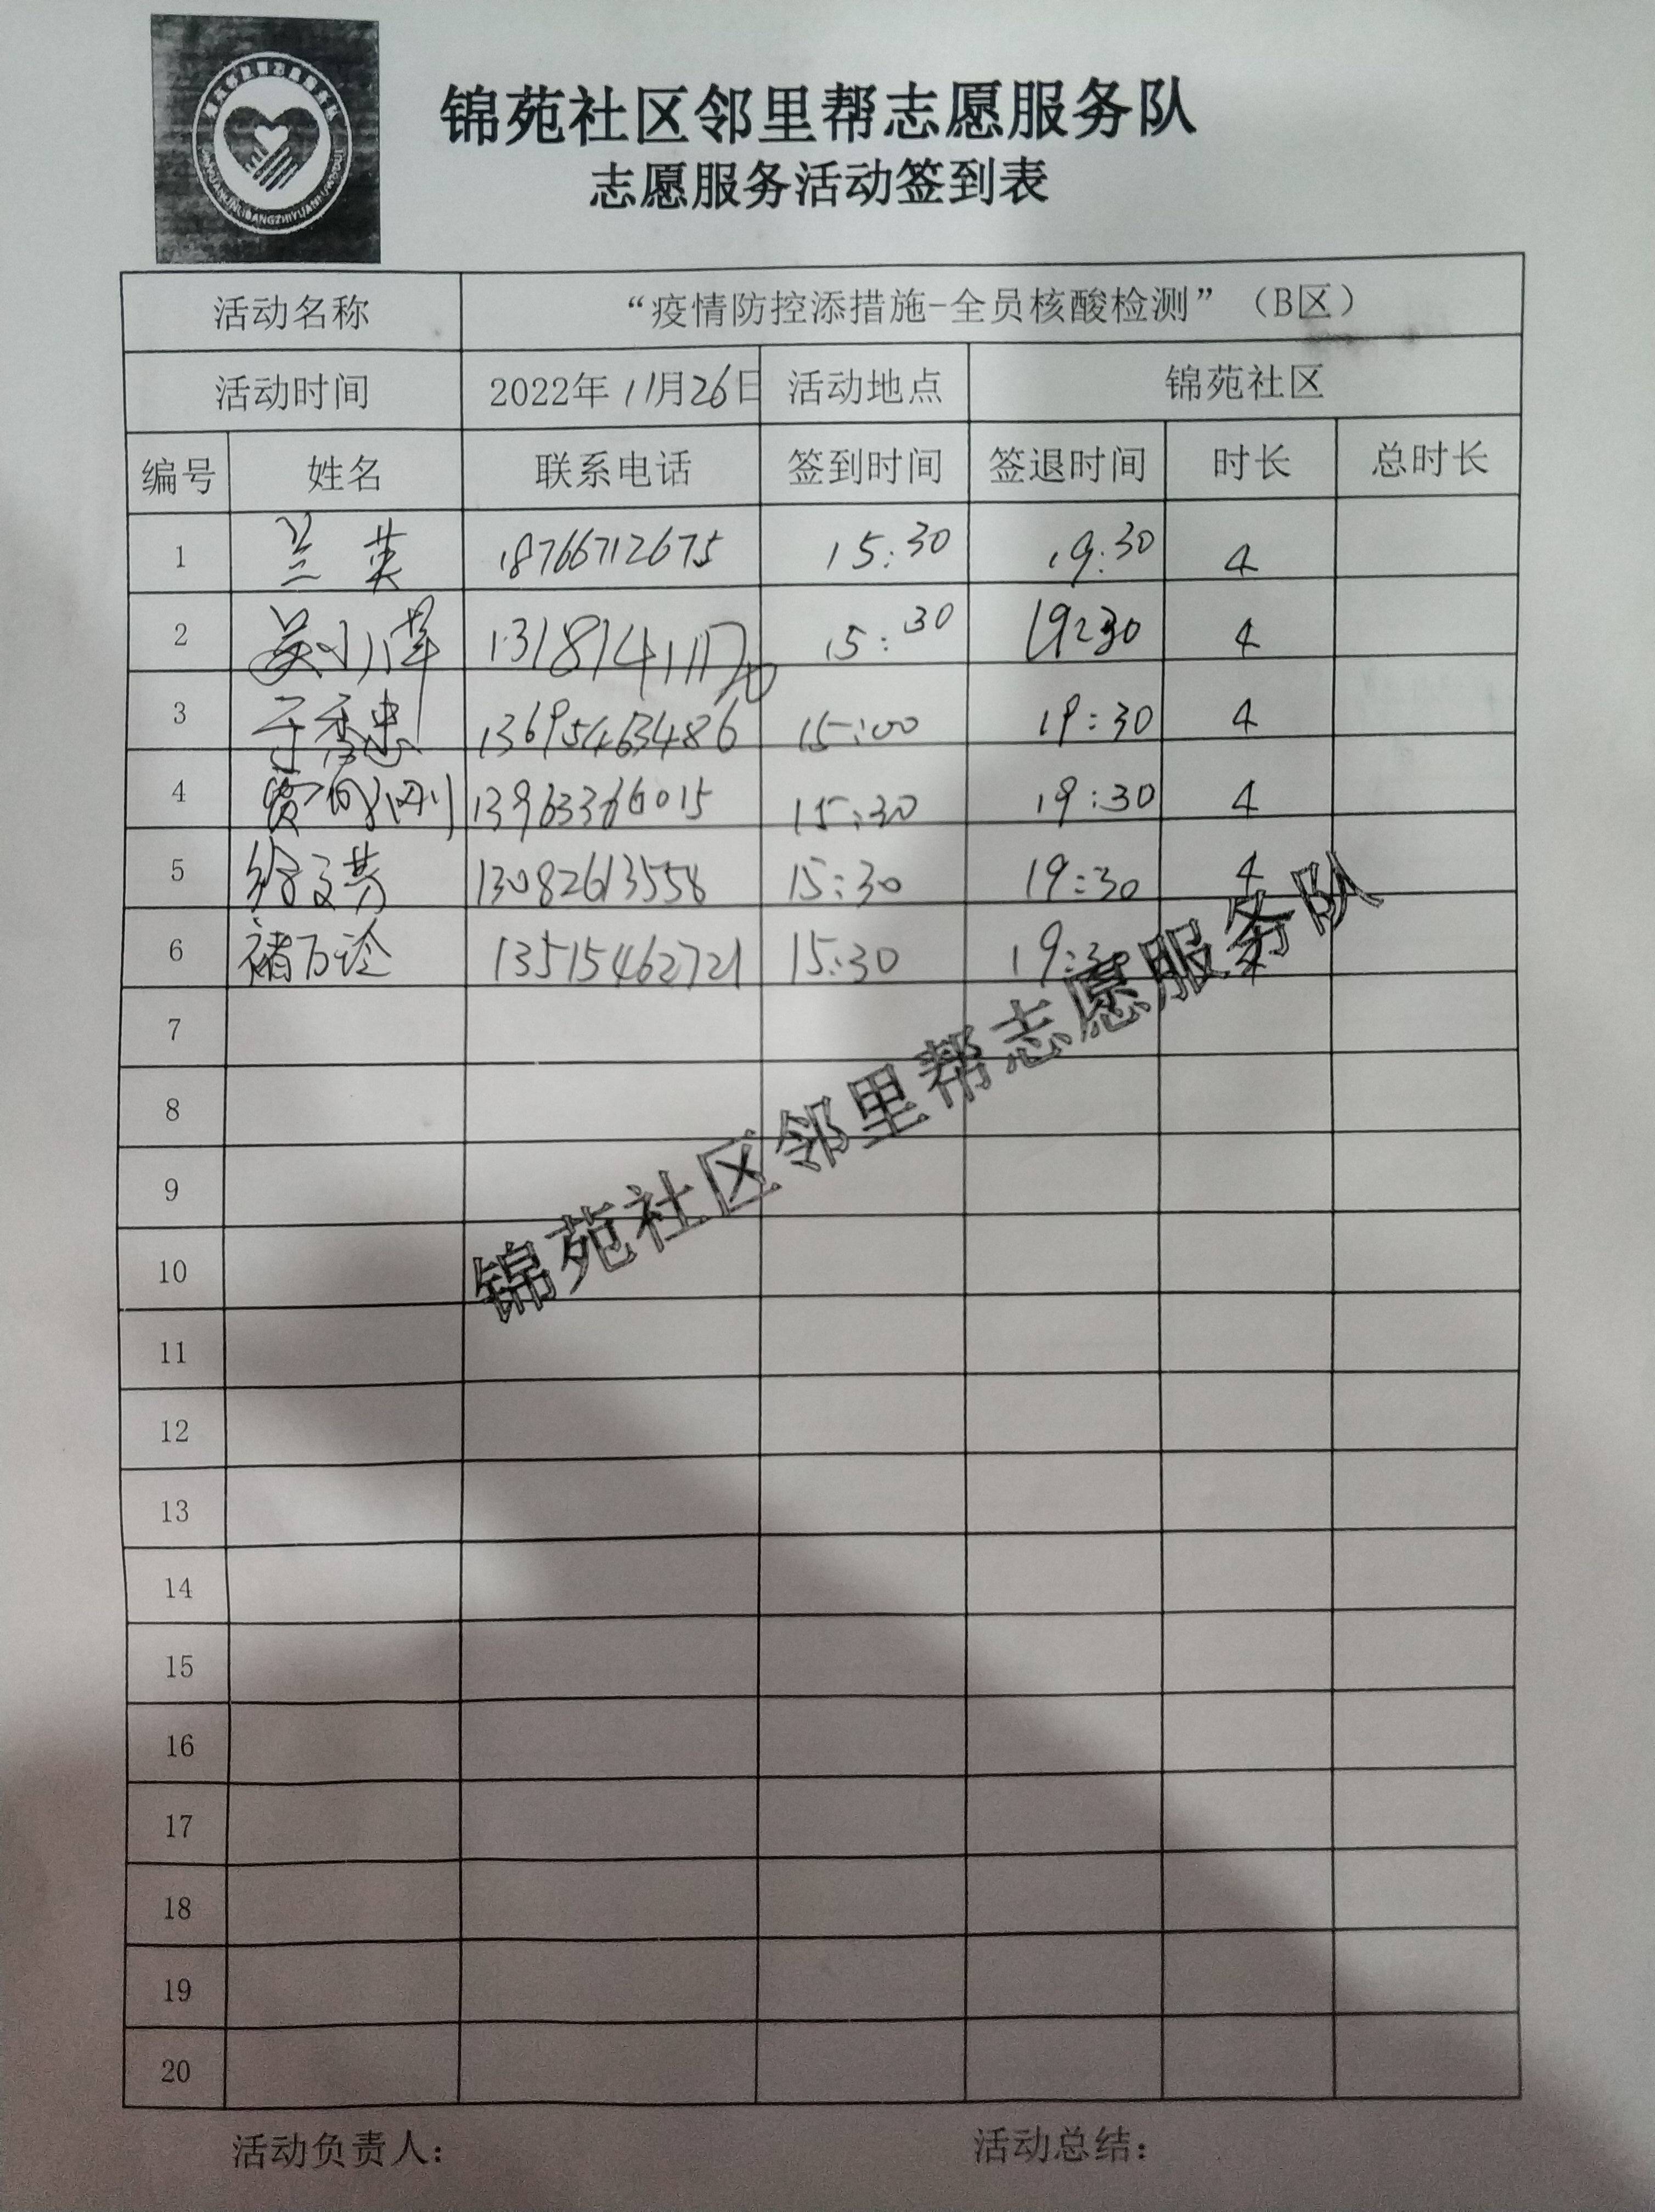 锦苑社区邻里帮志愿服务队
志愿服务活动签到表
活动名称 “疫情防控添措施-全员核酸检测”（B区）
活动时间 2022年11月26日 活动地点 锦苑社区
编号 姓名 联系电话 签到时间 签退时间 时长 总时长
1 兰英 18766712675 15:30 19:30 4
2 15:30 19:30 4
3 于秀忠 13695463486 15:00 19:30 4
4 贾向刚 13963366015 15:30 19:30 4
5 徐文芳 13082613558 15:30 19:30 4
6 褚万诊 13515462721 15:30 19:30 4
7
8
9
10
11
12
13
14
15
16
17
18
19
20
锦苑社区邻里帮志愿服务队
活动负责人： 活动总结：